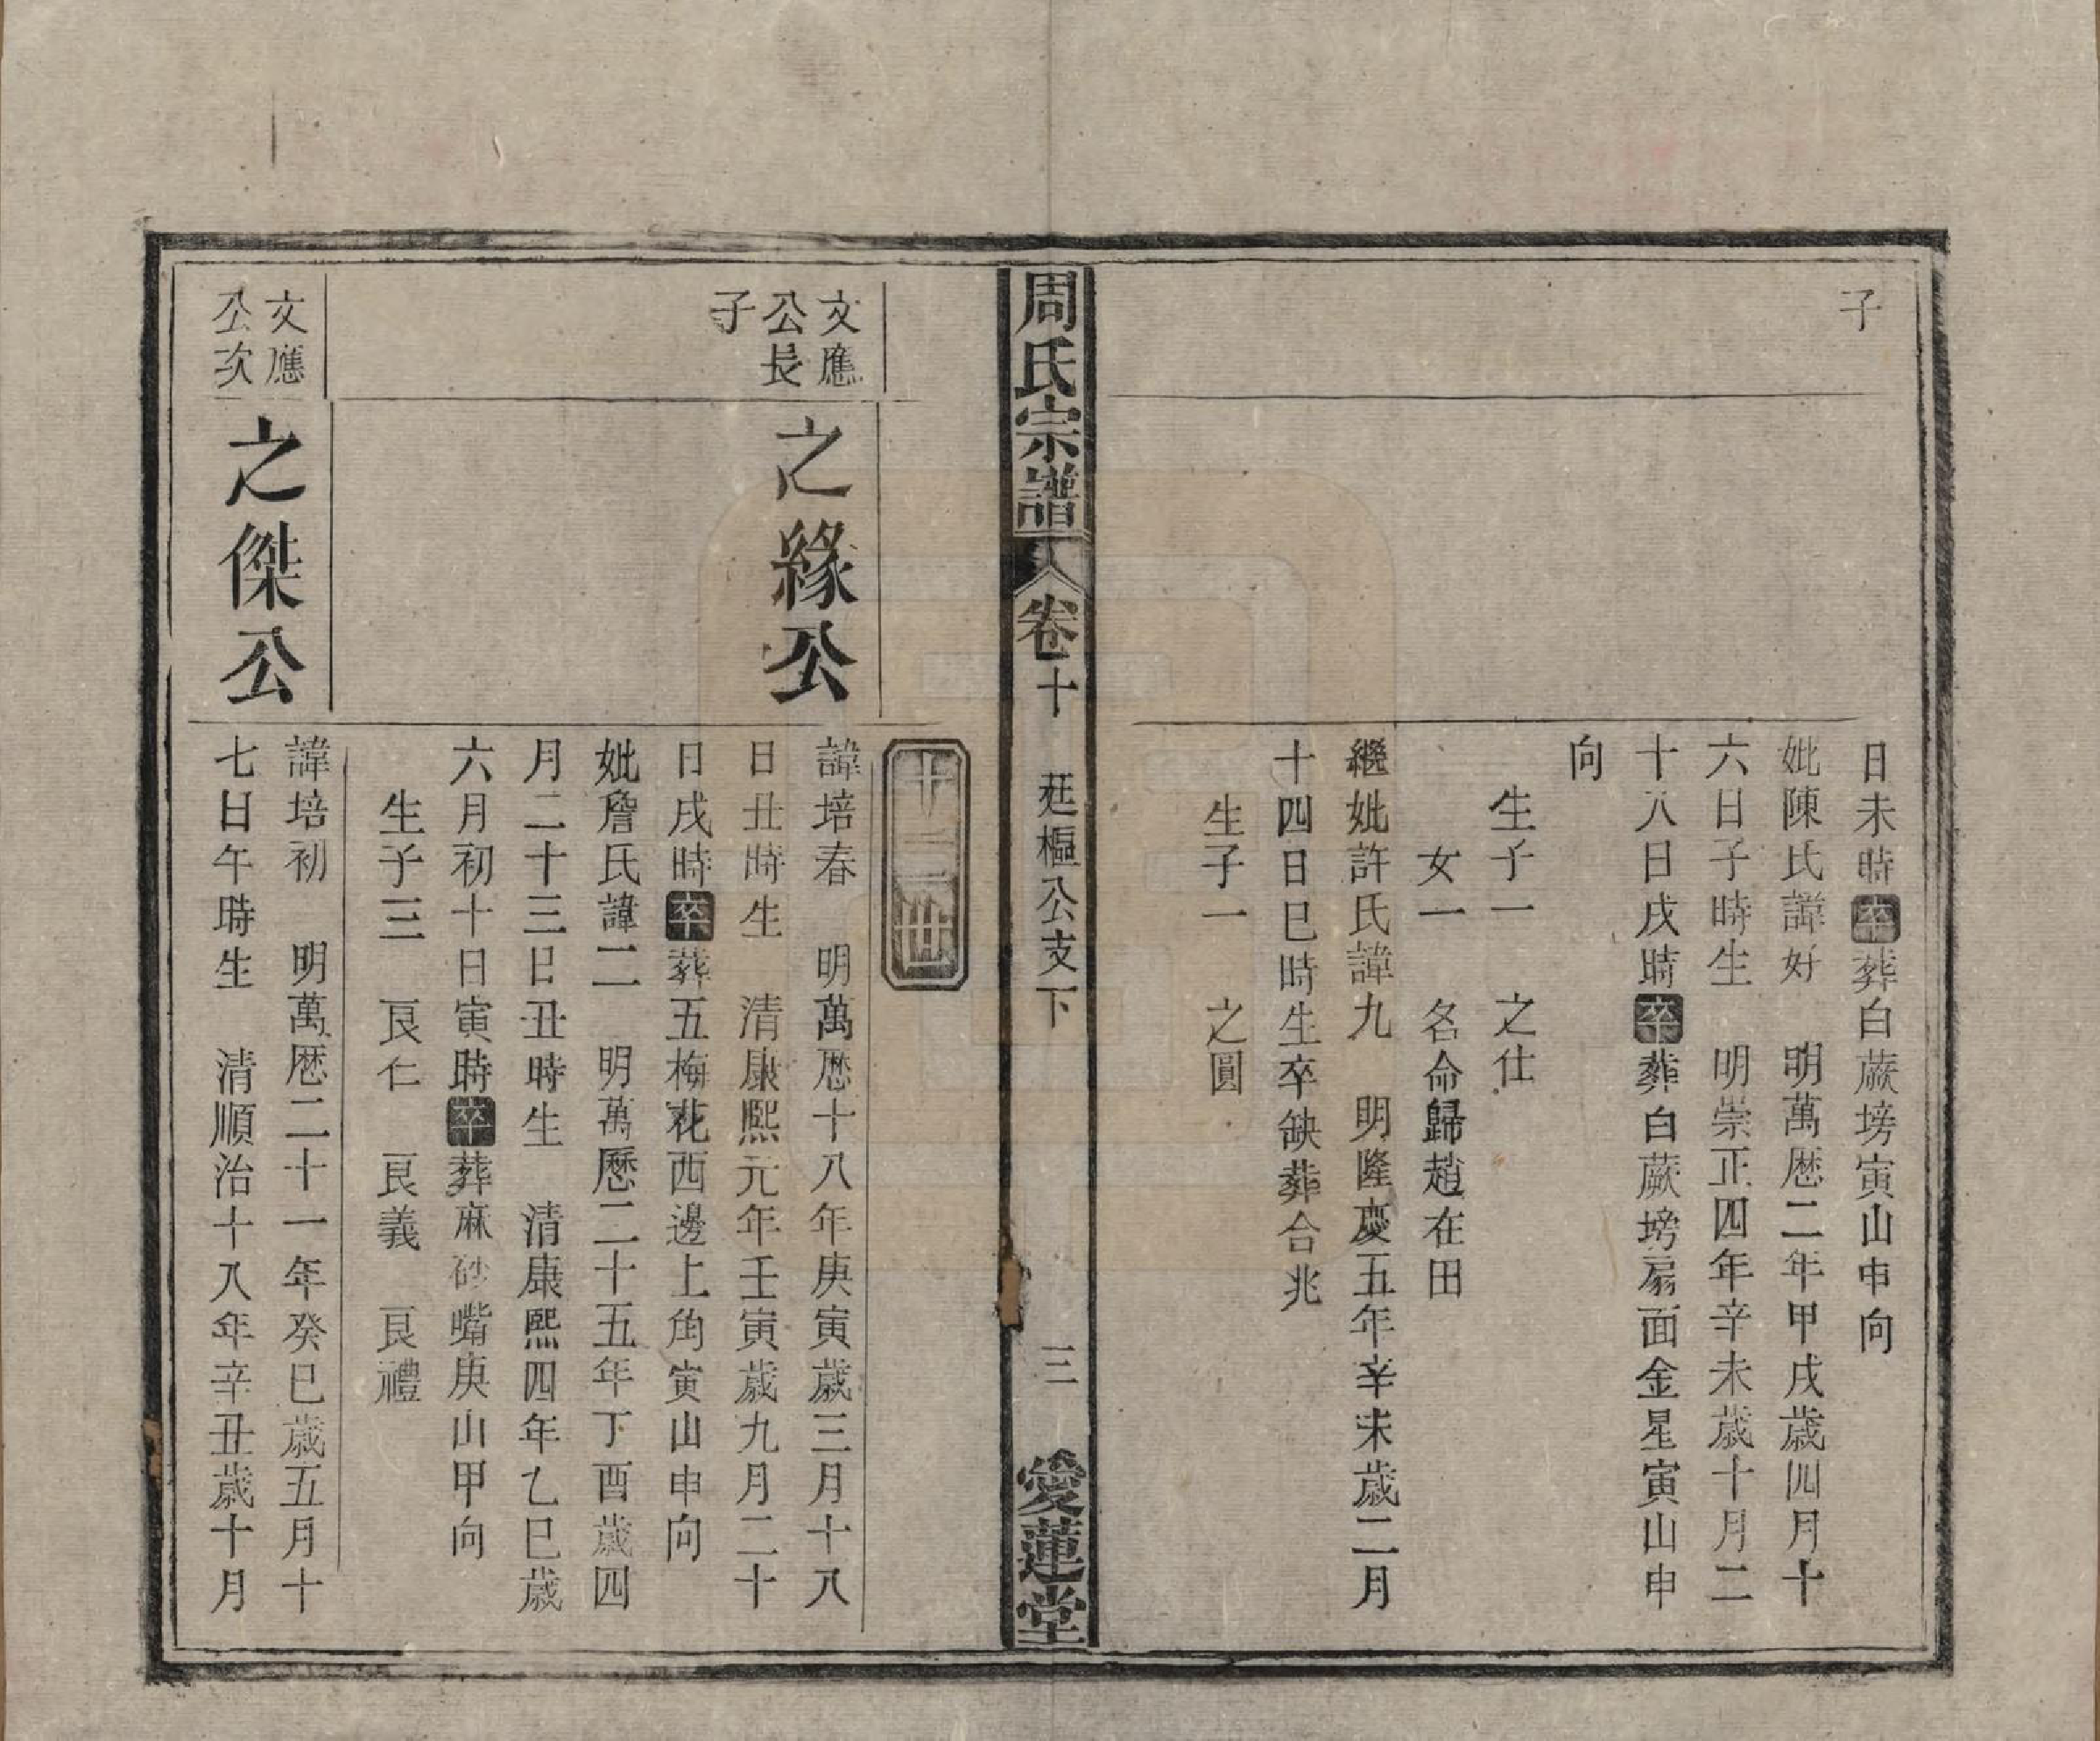 子
日未時卒葬白蕨塝寅山申向
妣陳氏諱好　明萬厯二年甲戌歲四月十
六日子時生　明崇正四年辛未歲十月二
十八日戌時卒葬白蕨塝扇面金星寅山申
向
生子一　之仕
女一　名命歸趙在田
繼妣許氏諱九　明隆慶五年辛未歲二月
十四日巳時生卒缺葬合兆
生子一　之圓
周氏宗譜　卷十　廷樞公支下　三　愛蓮堂
十二世
文應
公長
子
之緣公
諱培春　明萬厯十八年庚寅歲三月十八
日丑時生　清康熙元年壬寅歲九月二十
日戌時卒葬五梅花西邊上角寅山申向
妣詹氏諱二　明萬歷二十五年丁酉歲四
月二十三日丑時生　清康熙四年乙巳歲
六月初十日寅時卒葬麻砂嘴庚山甲向
生子三　艮仁　艮義　艮禮
文應
公次
之傑公
諱培初　明萬厯二十一年癸巳歲五月十
七日午時生　清順治十八年辛丑歲十月